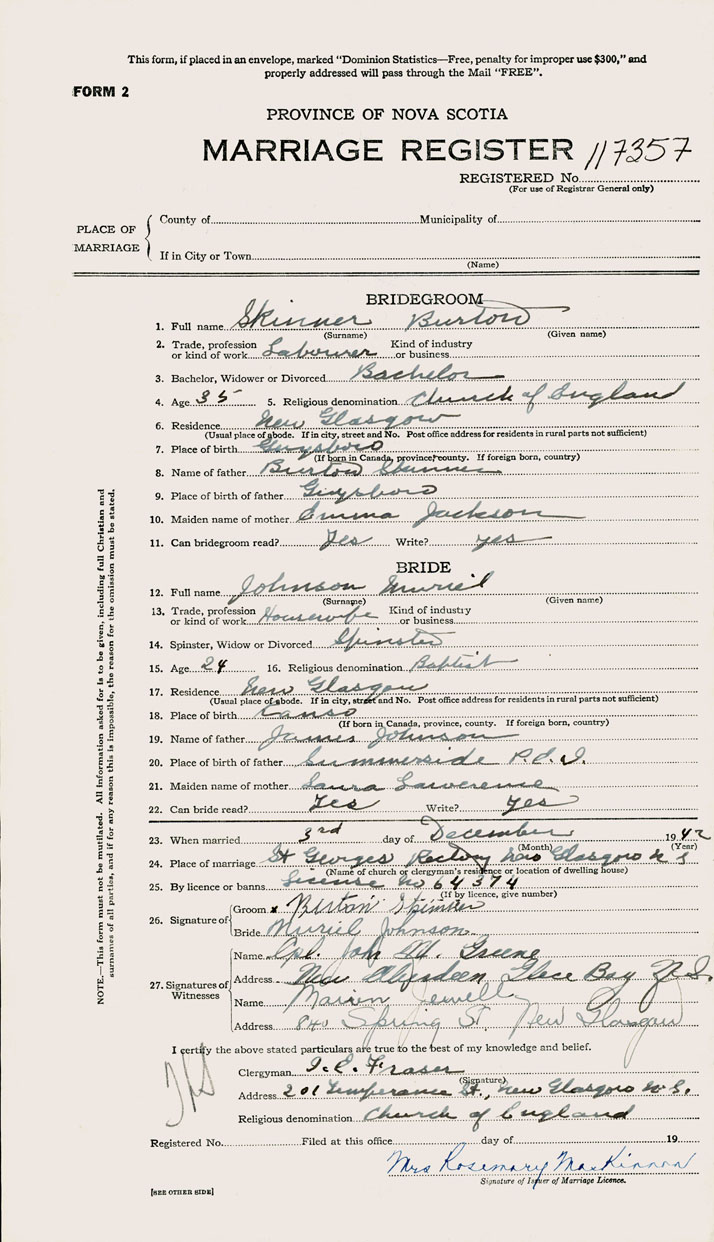 This form, if placed in an envelope, marked "Dominion Statistics—Free, penalty for improper use $300," and
properly addressed will pass through the Mail "FREE".
FORM 2
PROVINCE OF NOVA SCOTIA
MARRIAGE REGISTER 117357
REGISTERED No.
(For use of Registrar General only)
PLACE OF MARRIAGE
County of Municipality of
If in City or Town
(Name)
BRIDEGROOM
1. Full name Skinner Burton
(Surname) (Given name)
2. Trade, profession or kind of work Labourer Kind of industry or business
3. Bachelor, Widower or Divorced Bachelor
4. Age 35 5. Religious denomination Church of England
6. Residence New Glasgow
(Usual place of abode. If in city, street and No. Post office address for residents in rural parts not sufficient)
7. Place of birth Guysboro
(If born in Canada, province, county. If foreign born, country)
8. Name of father Burton Skinner
9. Place of birth of father Guysboro
10. Maiden name of mother Emma Jackson
11. Can bridegroom read? Yes Write? yes
BRIDE
12. Full name Johnson Muriel
(Surname) (Given name)
13. Trade, profession or kind of work Housewife Kind of industry or business
14. Spinster, Widow or Divorced Spinster
15. Age 24 16. Religious denomination Baptist
17. Residence New Glasgow
(Usual place of abode. If in city, street and No. Post office address for residents in rural parts not sufficient)
18. Place of birth Canso
(If born in Canada, province, county. If foreign born, country)
19. Name of father James Johnson
20. Place of birth of father Summerside P.E.I.
21. Maiden name of mother Laura Lawerence
22. Can bride read? Yes Write? Yes
23. When married 3rd day of December 1942
(Month) (Year)
24. Place of marriage St Georges Rectory New Glasgow N S
(Name of church or clergyman's residence or location of dwelling house)
25. By licence or banns License No 64374
(If by licence, give number)
26. Signature of
Groom x Burton Skinner
Bride Muriel Johnson
27. Signatures of Witnesses
Name Cpl. John M. Greene
Address New Aberdeen, Glace Bay N.S.
Name Marion Jewell
Address 840 Spring St, New Glasgow
I certify the above stated particulars are true to the best of my knowledge and belief.
Clergyman Fraser
(Signature)
Address 201 Temperance St., New Glasgow N.S.
Religious denomination Church of England
Registered No. Filed at this office day of 19
Mrs Rosemary MacKinnon
Signature of Issuer of Marriage Licence.
[SEE OTHER SIDE]
NOTE.—This form must not be mutilated. All information asked for is to be given, including full Christian and
surnames of all parties, and if for any reason this is impossible, the reason for the omission must be stated.